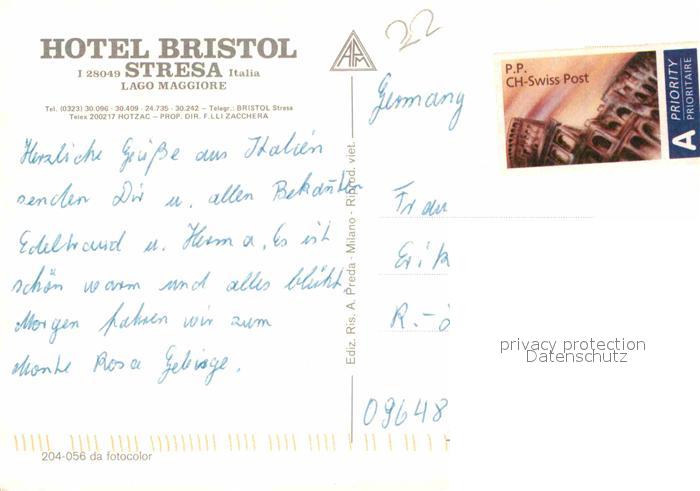 HOTEL BRISTOL
I 28049 STRESA Italia
LAGO MAGGIORE
Tel. (0323) 30.096 - 30.409 - 24.735 - 30.242 – Telegr.: BRISTOL Stresa
Telex 200217 HOTZAC – PROP. DIR. F.LLI ZACCHERA
Herzliche Grüße aus Italien
senden Dir u. allen Bekannten
Edeltraud u. Herma. Es ist
schön warm und alles blüht.
Morgen fahren wir zum
Monte Rosa Gebirge.
204-056 da fotocolor
Ediz. Ris. A. Preda - Milano - Riprod. viet.
APM
22
P.P.
CH-Swiss Post
A PRIORITY
PRIORITAIRE
Germany
Frau
Erik
R.-
09648
privacy protection
Datenschutz